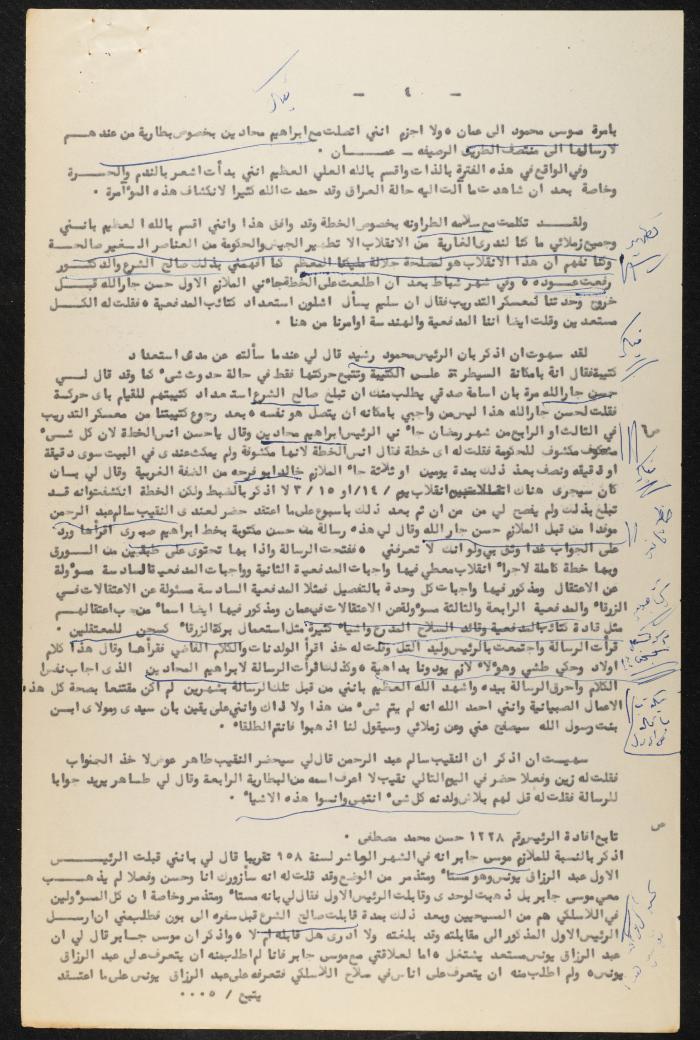 - ٤ -
بامرة صوس محمود الى عمان ٥ ولا اجزم انني اتصلت مع ابراهيم محادين بخصوص بطارية من عندهم
لارسالها الى منتصف الطريق الرصيفه - عمان ٠
وفي الواقع في هذه الفترة بالذات واقسم بالله العلي العظيم انني بدأت اشعر بالندم والحسرة
وخاصة بعد ان شاهدت ما آلت اليه حالة العراق وقد حمدت الله كثيرا لانكشاف هذه المؤآمرة ٠
ولقد تكلمت مع سلامه الطراونه بخصوص الخطة وقد وافق هذا وانني اقسم بالله العظيم بانني
وجميع زملائي ما كنا لندرى الغاية من الانقلاب الا تطهير الجيش والحكومة من العناصر الغير صالحة
وكنا نفهم ان هذا الانقلاب هو لمصلحة جلالة مليكنا المعظم كما افهمني بذلك صالح الشرع والدكتور
رفعت عوده ٥ وفي شهر شباط بعد ان اطلعت على الخطة جاءني الملازم الاول حسن جارالله قبل
خروج وحدتنا لمعسكر التدريب فقال ان سليم يسأل اشلون استعداد كتائب المدفعية ٥ فقلت له الكل
مستعدين وقلت ايضا اننا المدفعية والهندسة اوامرنا من هنا ٠
لقد سهوت ان اذكر بان الرئيس محمود رشيد قال لي عندما سألته عن مدى استعداد
كتيبة فقال انة بامكانة السيطرة على الكتيبة وتتبع حركتها فقط في حالة حدوث شيء كما وقد قال لي
حسن جارالله مرة بان اسامة صدقي يطلب منك ان تبلغ صالح الشرع استعداد كتيبتهم للقيام باى حركة
فقلت لحسن جارالله هذا ليس من واجبي بامكانه ان يتصل هو نفسه ٥ بعد رجوع كتيبتنا من معسكر التدريب
في الثالث او الرابع من شهر رمضان جاءني الرئيس ابراهيم محادين وقال ياحسن انس الخطة لان كل شيء
مكشوف للحكومة فقلت له اى خطة فقال انس الخطة لانها مكشوفة ولم يمكث عندى في البيت سوى دقيقة
او دقيقه ونصف بعد ذلك بمدة يومين او ثلاثة جاء الملازم خالد ابو فرحه من الضفة الغربية وقال لي بان
كان سيجرى هناك انقلاب يوم / ١٤ / او ١٥ / ٣ لا اذكر بالضبط ولكن الخطة انكشفت وانه قد
تبلغ بذلك ولم يفصح لي من من ان تم بعد ذلك باسبوع على ما اعتقد حضر لعندى النقيب سالم عبد الرحمن
موفدا من قبل الملازم حسن جارالله وقال لي هذه رسالة من حسن مكتوبة بخط ابراهيم صبرى اقرأها ورد
على الجواب غدا وثق بي ولو انك لا تعرفني ٥ ففتحت الرسالة واذا بها تحتوى على طبقين من الورق
وبها خطة كاملة لاجراء انقلاب معطي فيها واجبات المدفعية الثانية وواجبات المدفعية السادسة مسؤولة
عن الاعتقال ومذكور فيها واجبات كل وحدة بالتفصيل فمثلا المدفعية السادسة مسئولة عن الاعتقالات في
الزرقاء والمدفعية الرابعة والثالثة مسؤولة عن الاعتقالات في عمان ومذكور فيها ايضا اسماء من يجب اعتقالهم
مثل قادة كتائب المدفعية وقائد السلاح المدرع واشياء كثيرة مثل استعمال بركة الزرقاء كسجن للمعتقلين ٠
قرأت الرسالة واجتمعت بالرئيس وليد القل وقلت له خذ اقرأ الولدنات والكلام الفاضي فقرأها وقال هذا كلام
اولاد وحكي طشي وهولاء لازم يودونا بداهية ٥ وكذلك اقرأت الرسالة لابراهيم المحادين الذى اجاب نفس
الكلام واحرق الرسالة بيده واشهد الله العظيم بانني من قبل تلك الرسالة بشهرين لم اكن مقتنعا بصحة كل هذه
الاعمال الصبيانية وانني احمد الله انه لم يتم شيء من هذا ولا ذاك وانني على يقين بان سيدى ومولاى ابن
بنت رسول الله سيصفح عني وعن زملائي وسيقول لنا اذهبوا فانتم الطلقاء ٠
سهيت ان اذكر ان النقيب سالم عبد الرحمن قال لي سيحضر النقيب طاهر عوض لاخذ الجواب
فقلت له زين وفعلا حضر في اليوم التالي نقيب لا اعرف اسمه من البطارية الرابعة وقال لي طاهر يريد جوابا
للرسالة فقلت له قل لهم بلاش ولدنه كل شيء انتهى وانسوا هذه الاشياء ٠
تابع افادة الرئيس رقم ١٢٢٨ حسن محمد مصطفى ٠
اذكر بالنسبة للملازم موسى جابر انه في الشهر العاشر لسنة ١٥٨ تقريبا قال لي بانني قبلت الرئيس
الاول عبد الرزاق يونس وهو مستاء ومتذمر من الوضع وقد قلت له انه سأزورك انا وحسن وفعلا لم يذهب
معي موسى جابر بل ذهبت لوحدى وقابلت الرئيس الاول فقال لي بانه مستاء ومتذمر وخاصة ان كل المسؤولين
في اللاسلكي هم من المسيحيين وبعد ذلك بمدة قابلت صالح الشرع قبل سفره الى بون فطلب مني ان ارسل
الرئيس الاول المذكور الى مقابلته وقد بلغته ولا ادرى هل قابله ام لا ٥ واذكر ان موسى جابر قال لي ان
عبد الرزاق يونس مستعد يشتغل ٥ اما لعلاقتي مع موسى جابر فانا لم اطلب منه ان يتعرف على عبد الرزاق
يونس ٥ ولم اطلب منه ان يتعرف على اناس في سلاح اللاسلكي فتعرفه على عبد الرزاق يونس على ما اعتقد
يتبع / ٥ ٠ ٠ ٠